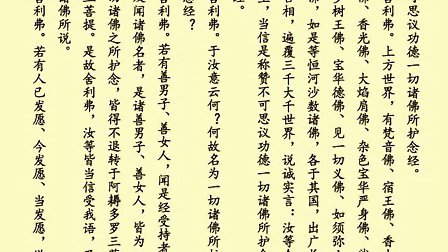 思议功德一切诸佛所护念经。
利弗。上方世界，有梵音佛、宿王佛、香
、香光佛、大焰肩佛、杂色宝华严身佛、娑
多树王佛、宝华德佛、见一切义佛、如须弥
佛，如是等恒河沙数诸佛，各于其国，出广长
相，遍覆三千大千世界，说诚实言：汝等
，当信是称赞不可思议功德一切诸佛所护念
经。
利弗。于汝意云何？何故名为一切诸佛所
经？
利弗。若有善男子、善女人，闻是经受持者
及闻诸佛名者，是诸善男子、善女人，皆为
诸佛之所护念，皆得不退转于阿耨多罗三
三菩提。是故舍利弗，汝等皆当信受我语，
诸佛所说。
利弗。若有人已发愿、今发愿、当发愿，